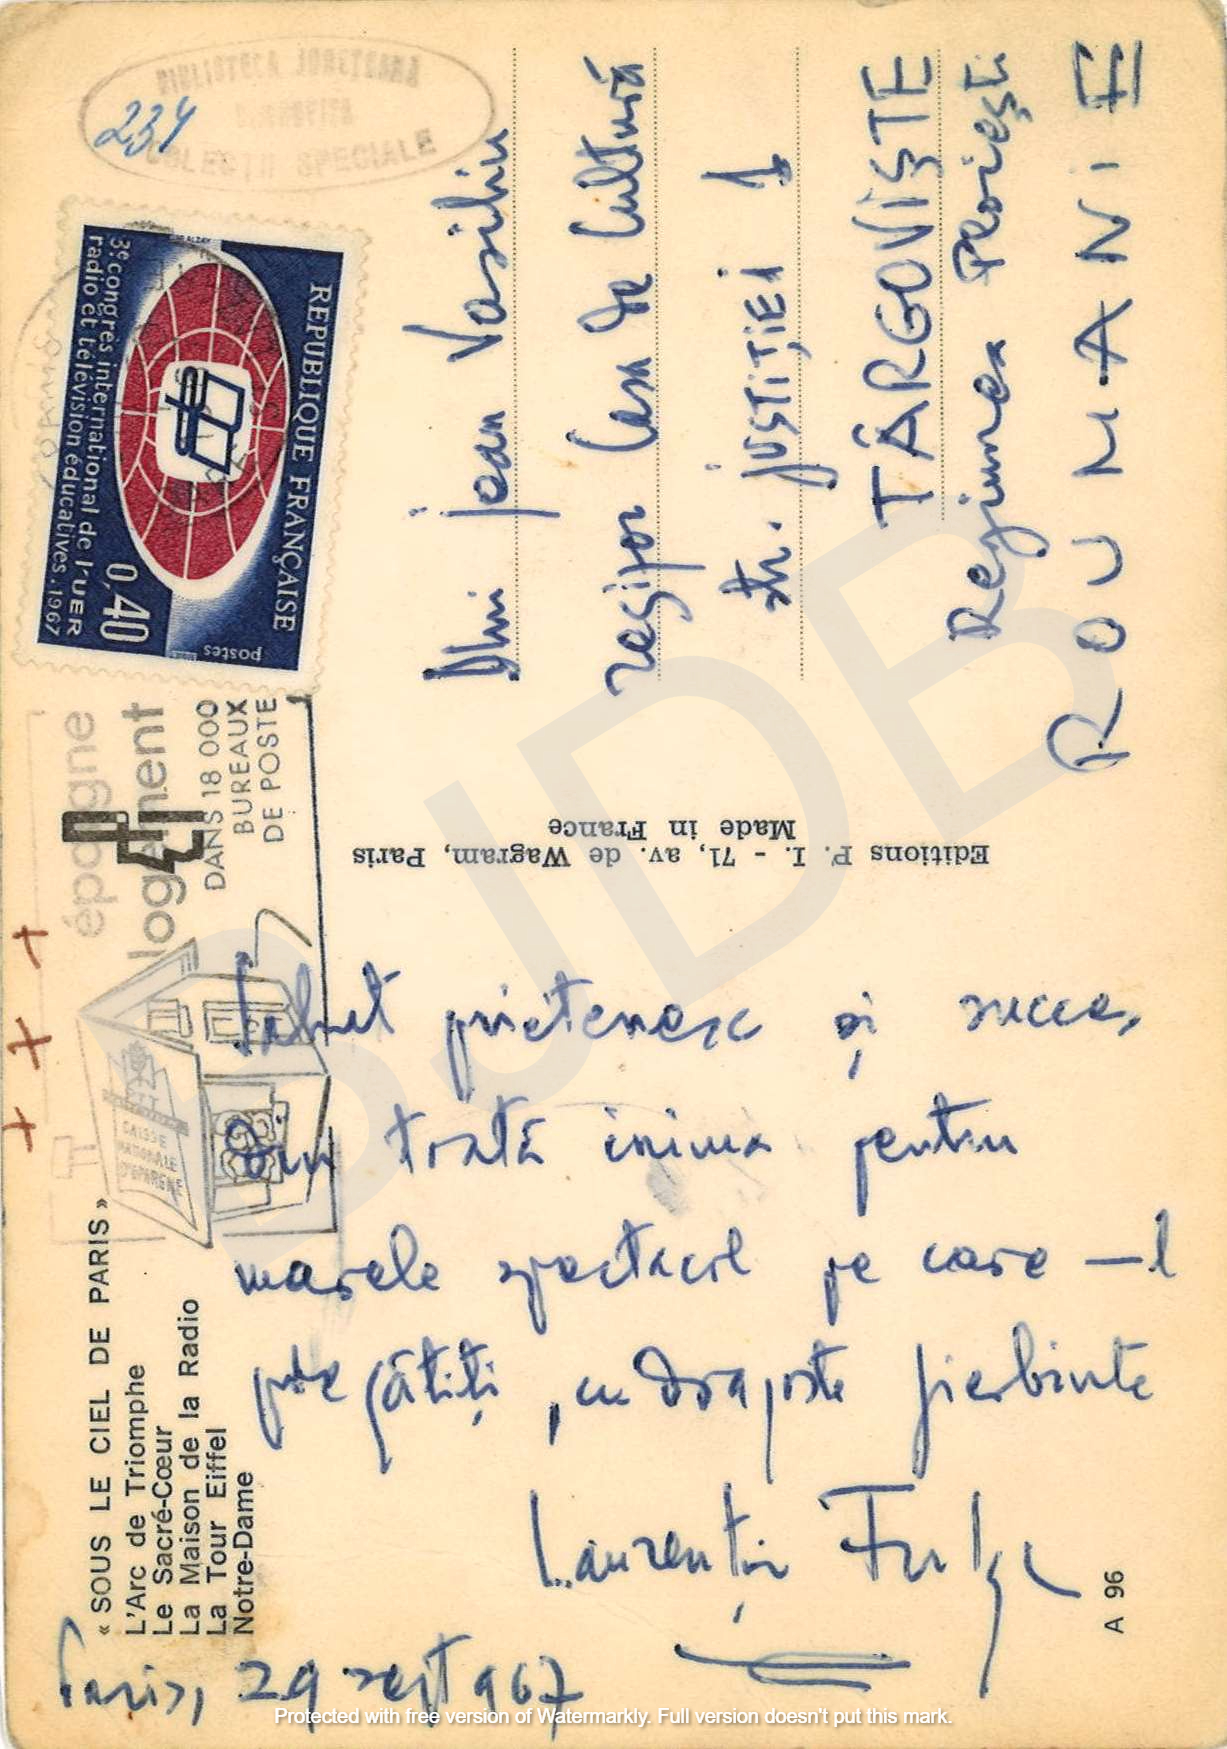 BIBLIOTECA JUDEȚEANĂ
DÂMBOVIȚA
COLECȚII SPECIALE
234
REPUBLIQUE FRANÇAISE
3e congrès international de l'UER
radio et télévision éducatives.1967
0,40
postes
épargne
logement
DANS 18 000
BUREAUX
DE POSTE
CAISSE
NATIONALE
D'EPARGNE
« SOUS LE CIEL DE PARIS »
L'Arc de Triomphe
Le Sacré-Cœur
La Maison de la Radio
La Tour Eiffel
Notre-Dame
Salut prietenesc și succes
din toată inima pentru
marele spectacol pe care-l
pregătiți, cu dragoste fierbinte
Laurențiu Fulga
Paris, 29 sept 967
A 96
Editions P. I. - 71, av. de Wagram, Paris
Made in France
Dlui jean Vasiliu
regizor Casa de Cultură
str. jUSTIȚIEi 1
TÂRGOViȘTE
Regiunea Ploiești
ROUMANiE
BJDB
Protected with free version of Watermarkly. Full version doesn't put this mark.